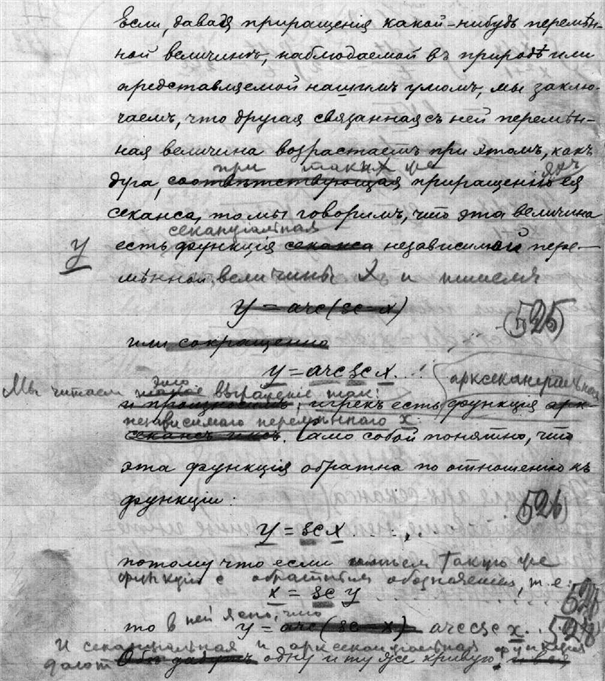 Если, давая приращенія какой-нибудь перемѣн-
ной величинѣ, наблюдаемой въ природѣ или
представляемой нашимъ умомъ, мы заклю-
чаемъ, что другая связанная съ ней перемѣн-
ная величина возрастаетъ при этомъ, какъ
при такихъ же
дуга, соотвѣтствующая приращеніямъ ея
секанса, то мы говоримъ, что эта величина
секансіальная
у есть функція секанса независимой пере-
мѣнной величины x и пишемъ
y = arc(sc = x) (525)
или сокращенно
y = arc sc x...
Мы читаемъ это выраженіе такъ: арксекансіальная
и произносимъ, игрекъ есть функція арк-
независимого переменного x.
секансъ иксъ. Само собой понятно, что
эта функція обратна по отношенію къ
функціи: (526)
y = sc x . . . .
потому что если такую же
функцію съ обратнымъ обозначеніемъ, т.е.
x = sc y ......... 527
то въ ней ясно, что y = arc(sc = x) arc sc x... 528
И секансіальная и арксекансіальная функція
даютъ одну и ту же кривую